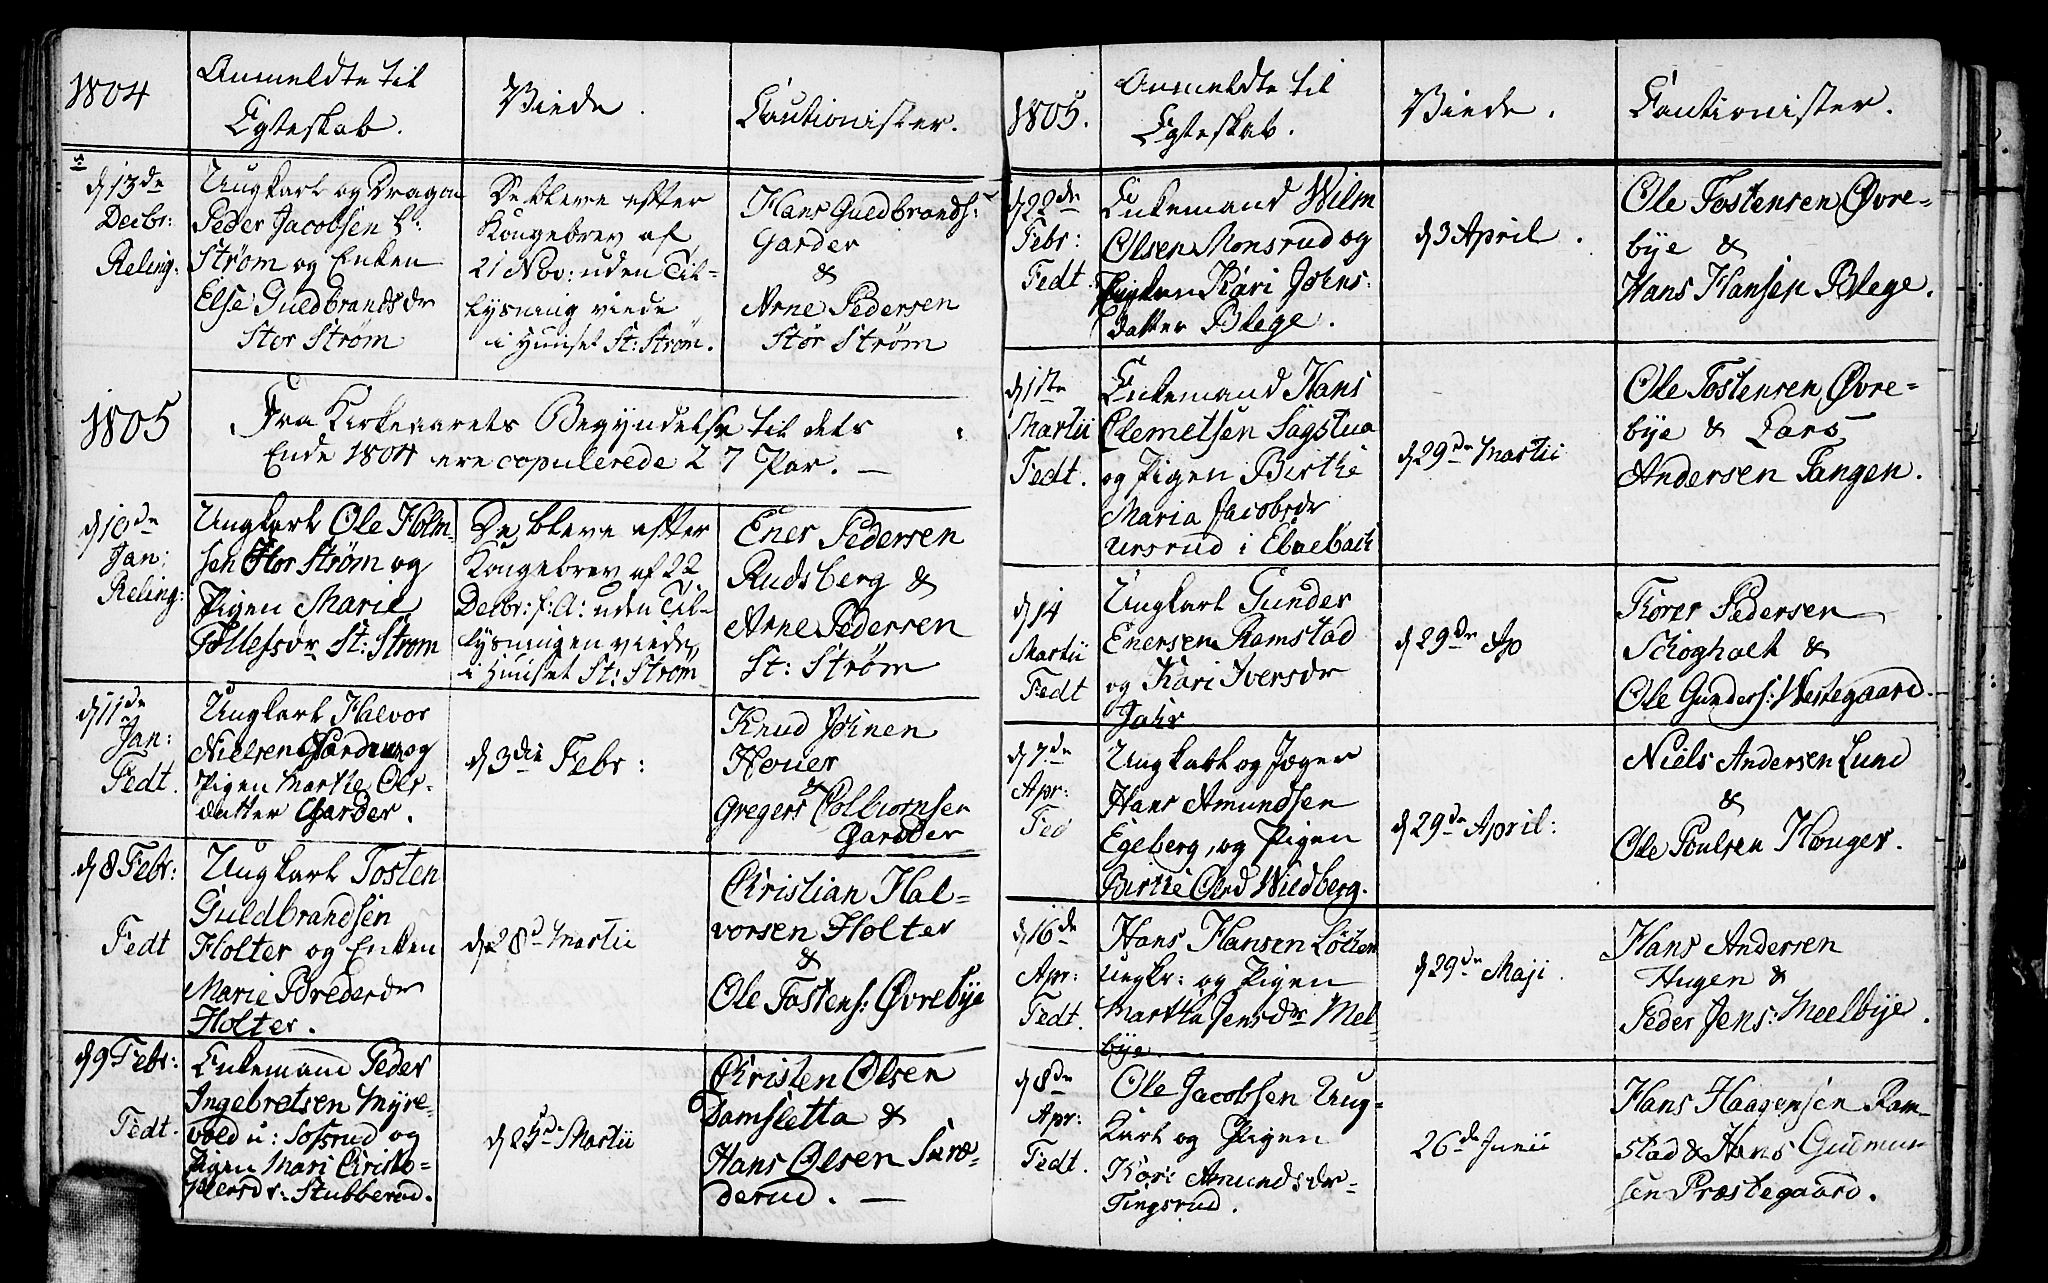 1804
Anmeldte til
Egteskab.
Viede.
Cautionister.
d 13de
Decbr:
Reling:
Ungkarl og Dragon
Peder Jacobsen L:
Strøm og Enken
Else Guldbrandsdr
Stor Strøm
De bleve efter
Kongebrev af
21 Nov: uden Til-
lysning viede
i Huuset St: Strøm.
Hans Guldbrands:
Garder
&
Arne Pedersen
Stor Strøm
1805
Fra Kirkeaarets Begyndelse til dets
Ende 1804 ere copulerede 27 Par. —
d 10de
Jan:
Reling:
Ungkarl Ole Holm-
sen Stor Strøm og
Pigen Marie
Tollefsdr St: Strøm
De bleve efter
Kongebrev af 22
Decbr: f: A: uden Til-
lysningen viede
i Huuset St: Strøm
Ener Pedersen
Rudsberg &
Arne Pedersen
St: Strøm
d 11de
Jan:
Fedt.
Ungkarl Halvor
Nielsen og
Pigen Marthe Ols-
datter Garder.
d 3die Febr:
Knud
Houer
&
Gregers Colbiørnsen
Garder
d 8 Febr:
Fedt
Ungkarl Tosten
Guldbrandsen
Holter og Enken
Marie Brededr
Holter.
d 28d Martii
Christian Hal-
vorsen Holter
&
Ole Tostens: Øvrebye
d 9 Febr:
Fedt.
Enkemand Peder
Ingebretsen Myre-
vold u: Fossrud og
Pigen Mari Christo-
phersdr: Stubberud.
d 25de Martii
Christen Olsen
Damsletta &
Hans Olsen Sun-
derud. —
1805.
Anmeldte til
Egteskab.
Viede.
Cautionister.
d 22de
Febr:
Fedt.
Enkemand Wilm
Olsen Monsrud og
Pigen Kari Johns-
datter Blege.
d 3 April.
Ole Tostensen Øvre-
bye &
Hans Hansen Blege.
d 1ste
Martii
Fedt.
Enkemand Hans
Clemetsen Sagstua
og Pigen Birthe
Maria Jacobsdr
Ursrud i Ebnebach
d 29de Martii
Ole Tostensen Øvre-
bye & Lars
Andersen Tangen.
d 14
Martii
Fedt
Ungkarl Gunder
Enersen Ramstad
og Kari Iversdr
Jahr
d 29de Ap
Torer Pedersen
Schogholt &
Ole Gunders: Westegaard.
d 7de
Apr:
Fed
Ungkarl og Jæger
Hans Amundsen
Egeberg, og Pigen
Birthe Olsd Wildberg.
d 29de April:
Niels Andersen Lund
&
Ole Poulsen Houger.
d 16de
Apr:
Fedt.
Hans Hansen Løcken
ungkr: og Pigen
Martha Jensdr Mel-
bye. —
d 29de Maji.
Hans Andersen
Hugen &
Peder Jens: Meelbye.
d 8de
Apr:
Fedt.
Ole Jacobsen Ung-
karl og Pigen
Kari Amundsdr-
Tingsrud.
26de Junii
Hans Haagensen Ram-
stad & Hans Gudmun-
sen Præstegaard.